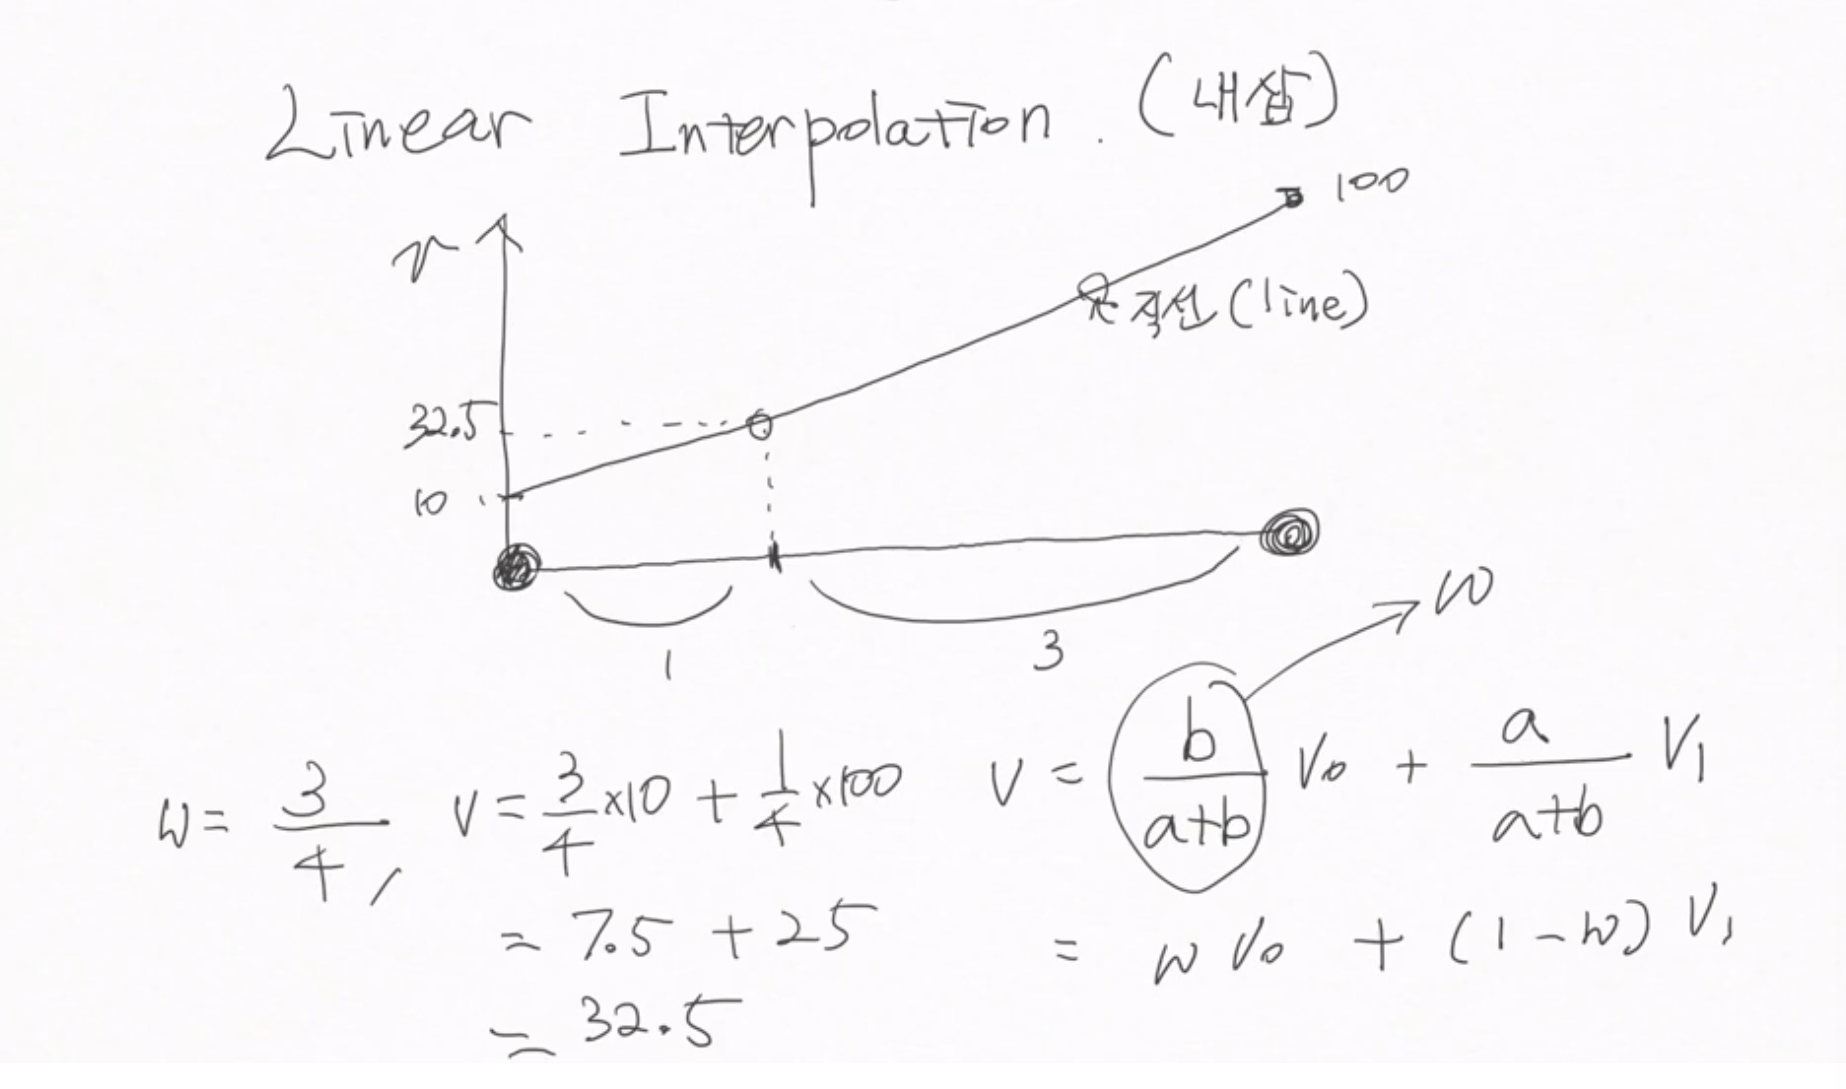 Linear Interpolation. (내삽)
v
100
직선 (line)
32.5
10
1
3
w
w = 3/4, v = 3/4 x10 + 1/4 x100
= 7.5 + 25
= 32.5
v = b/a+b V0 + a/a+b V1
= w V0 + (1-w) V1